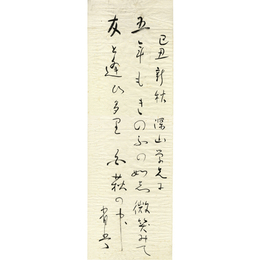 己丑新秋 深山学兄に
五年もきのふの如し微笑みて
友と逢ひ多里 白萩の中